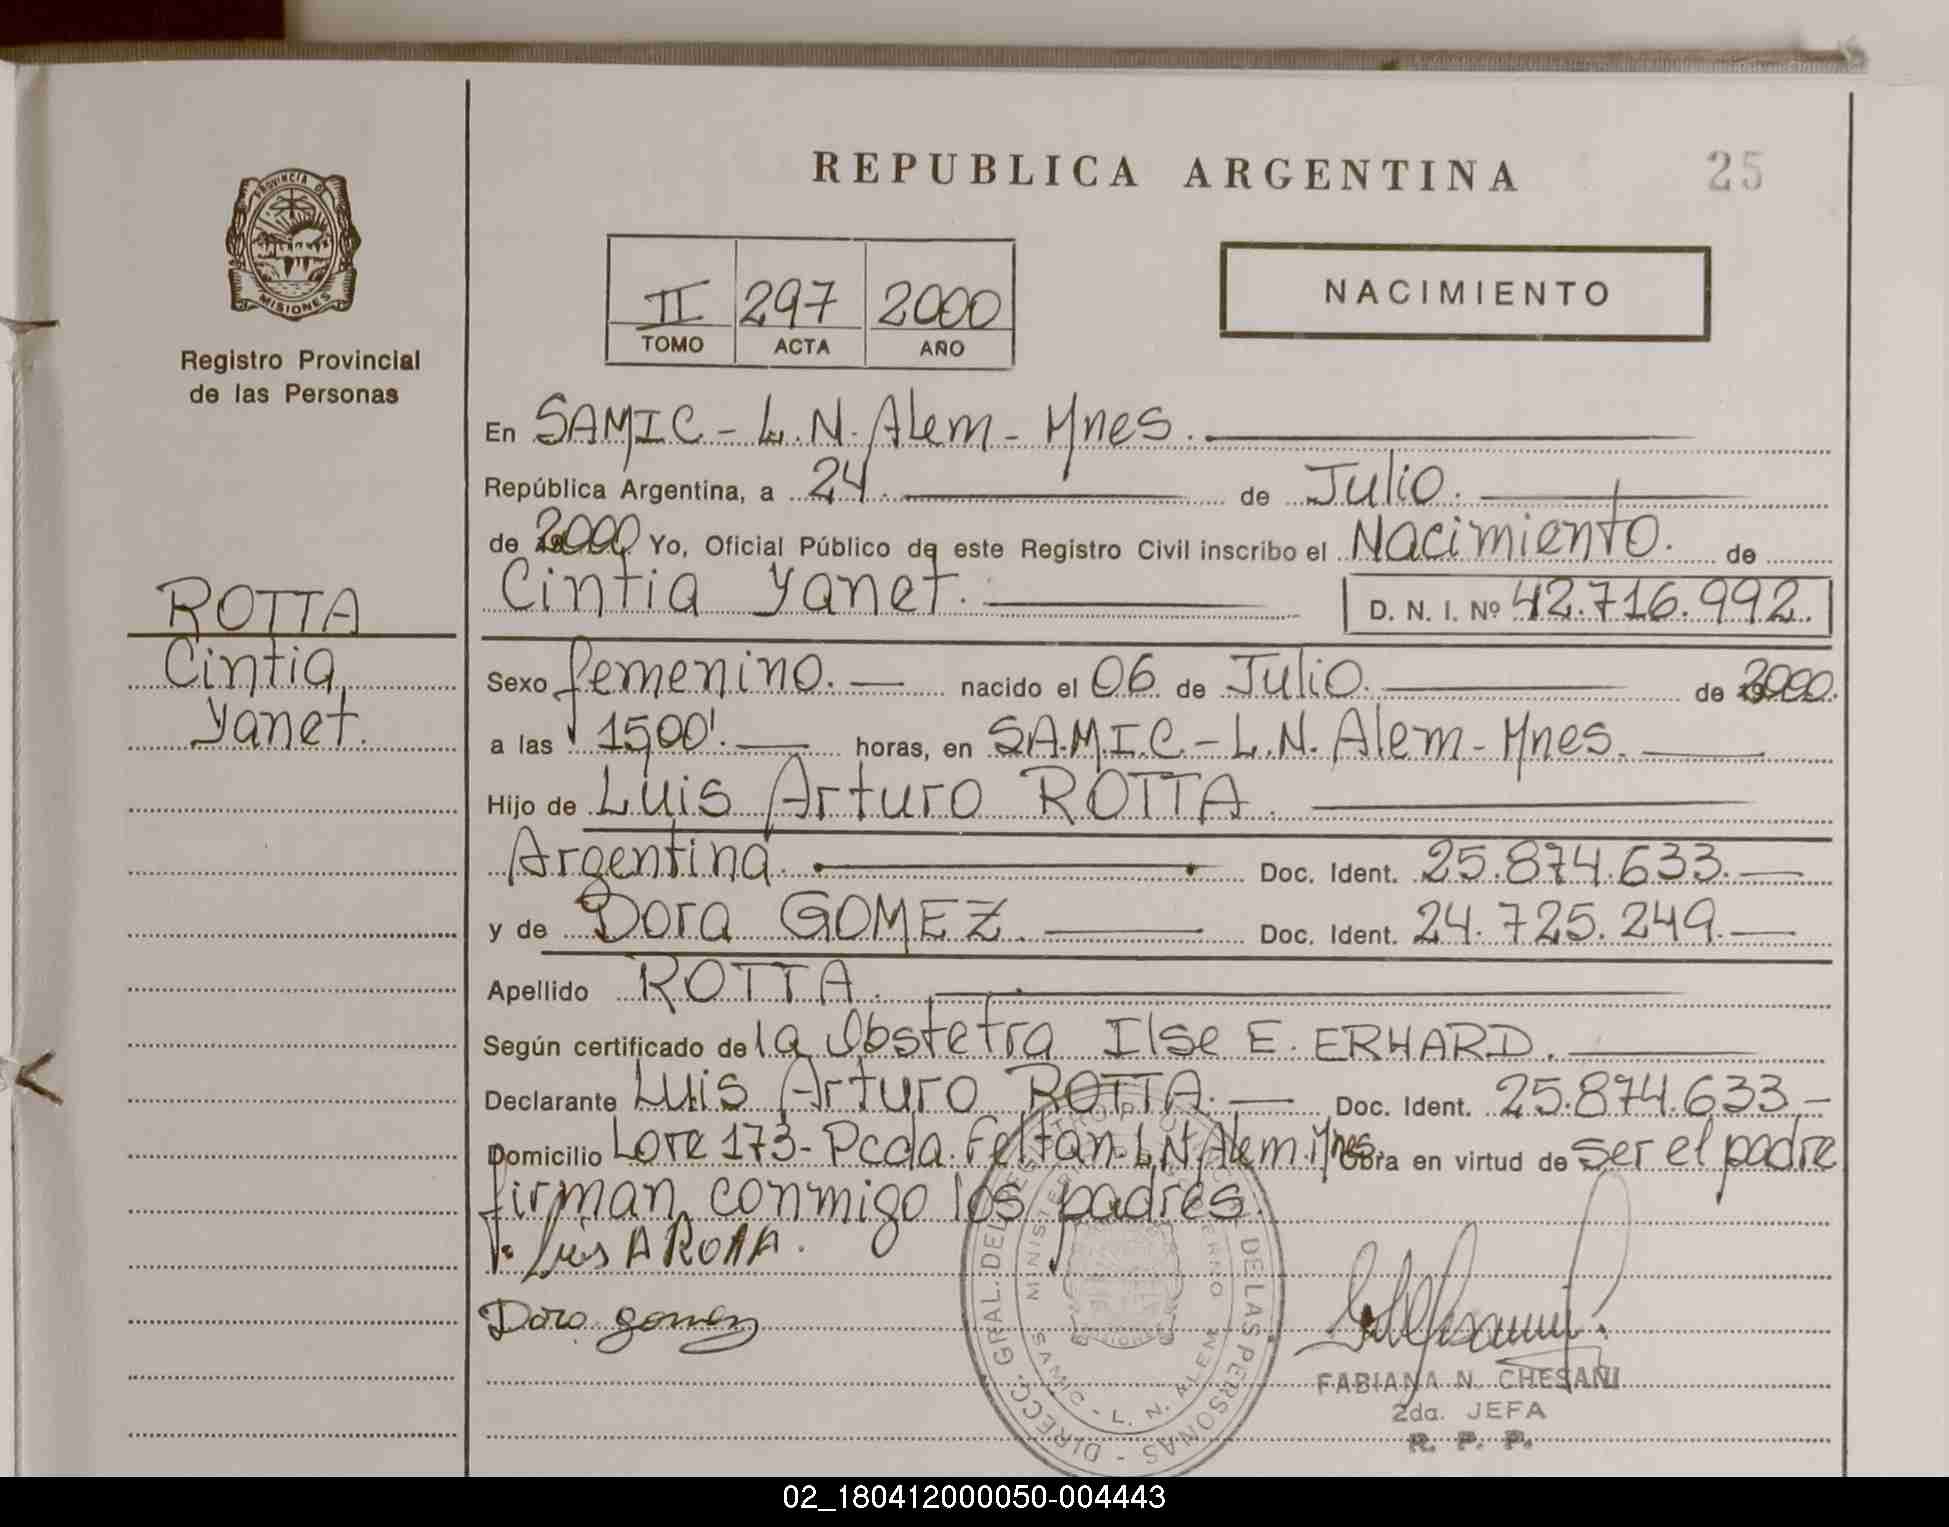 REPUBLICA ARGENTINA
25
PROVINCIA DE
MISIONES
Registro Provincial
de las Personas
II 297 2000
TOMO ACTA AÑO
NACIMIENTO
En SAMIC - L.N. Alem - Mnes.
República Argentina, a 24. de Julio.
de 2000. Yo, Oficial Público de este Registro Civil inscribo el Nacimiento. de
Cintia Yanet. D. N. I. Nº 42.716.992.
ROTTA
Cintia
Yanet.
Sexo femenino. — nacido el 06 de Julio. de 2000.
a las 1500'. — horas, en S.A.M.I.C. - L.N. Alem - Mnes.
Hijo de Luis Arturo ROTTA.
Argentina. Doc. Ident. 25.874.633. —
y de Dora GOMEZ. Doc. Ident. 24.725.249. —
Apellido ROTTA.
Según certificado de la Obstetra Ilse E. ERHARD.
Declarante Luis Arturo ROTTA. — Doc. Ident. 25.874.633 -
Domicilio Lote 173 - Pcda. Feltan. L.N. Alem. Mnes. Obra en virtud de ser el padre
firman conmigo los padres.
Luis A ROTTA.
Dora gomez
DIRECC. GRAL. DEL REGISTRO PROVINCIAL DE LAS PERSONAS
MINISTERIO DE GOBIERNO
SAMIC - L. N. ALEM
FABIANA N. CHESANI
2da. JEFA
R. P. P.
02_180412000050-004443